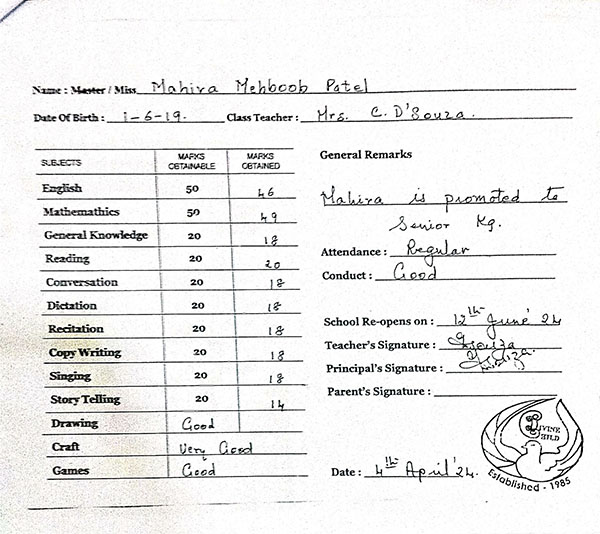 Name : Master / Miss Mahira Mehboob Patel
Date Of Birth : 1-6-19. Class Teacher : Mrs. C. D'Souza.
SUBJECTS MARKS OBTAINABLE MARKS OBTAINED
English 50 46
Mathemathics 50 49
General Knowledge 20 18
Reading 20 20
Conversation 20 18
Dictation 20 18
Recitation 20 18
Copy Writing 20 18
Singing 20 18
Story Telling 20 14
Drawing Good
Craft Very Good
Games Good
General Remarks
Mahira is promoted to
Senior Kg.
Attendance : Regular
Conduct : Good
School Re-opens on : 12th June' 24
Teacher's Signature :
Principal's Signature :
Parent's Signature :
Date : 4th April' 24.
DIVINE
CHILD
Established - 1985